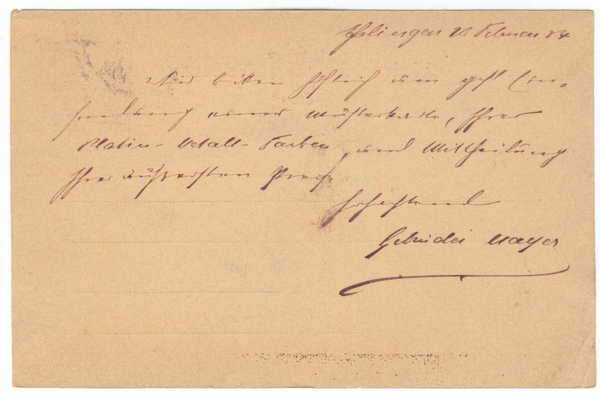 Esslingen 21 Februar 84
Wir bitten höflich um gefl. Ein-
sendung einer Musterkarte, Ihrer
Platin-Metall-Farben, und Mittheilung
Ihrer äussersten Preise
Hochachtend
Gebrüder Mayer